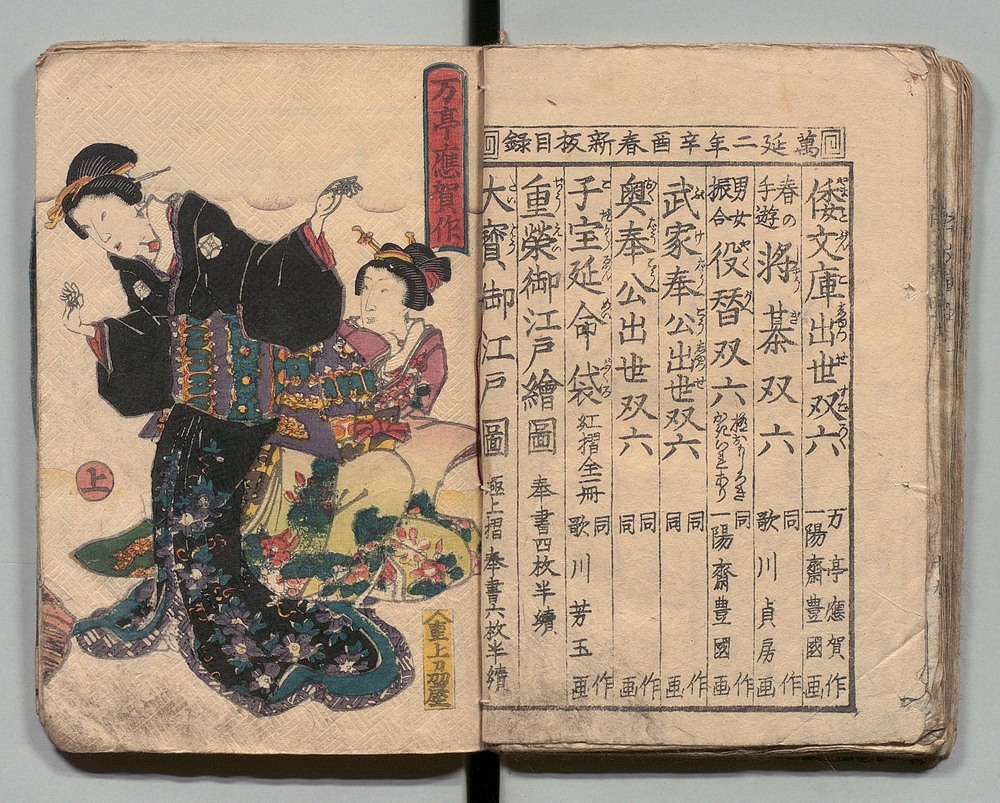 萬延二年辛酉春新板目録
倭文庫出世双六 万亭應賀作
一陽齋豊國画
春の手遊 将棊双六 同作
歌川貞房画
男女振合 役替双六 同作
一陽齋豊國画
武家奉公出世双六 同作
同画
奥奉公出世双六 同作
同画
子宝延命袋 紅摺全一冊 同作
歌川芳玉画
重榮御江戸繪圖 奉書四枚半續
大寳御江戸圖 極上摺奉書六枚半續
万亭應賀作
上